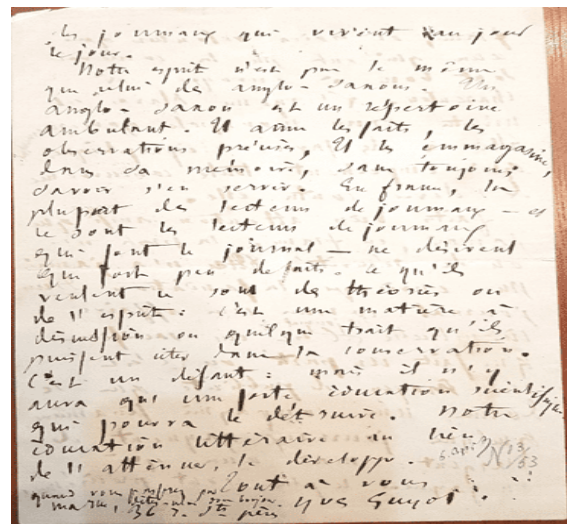 les journaux qui vivent au jour
le jour.
Notre esprit n'est pas le même
que celui des anglo-saxons. Un
anglo-saxon est un répertoire
ambulant. Il aime les faits, les
observations précises, Il les emmagasine,
dans sa mémoire, sans toujours
savoir s'en servir. En france, la
plupart des lecteurs de journaux – et
ce sont les lecteurs de journaux
qui font le journal – ne désirent
que fort peu de faits. Ce qu'ils
veulent ce sont des théories ou
de l'esprit : c'est une matière à
discussion ou quelque trait qu'ils
puissent citer dans la conversation.
C'est un défaut : mais il n'y
aura qu'une forte éducation scientifique
qui pourra le détruire. Notre
éducation littéraire au lieu
de l'atténuer, le développe.
Tout à vous
Yves Guyot
quand vous
36 r. Sts pères
N 13/53